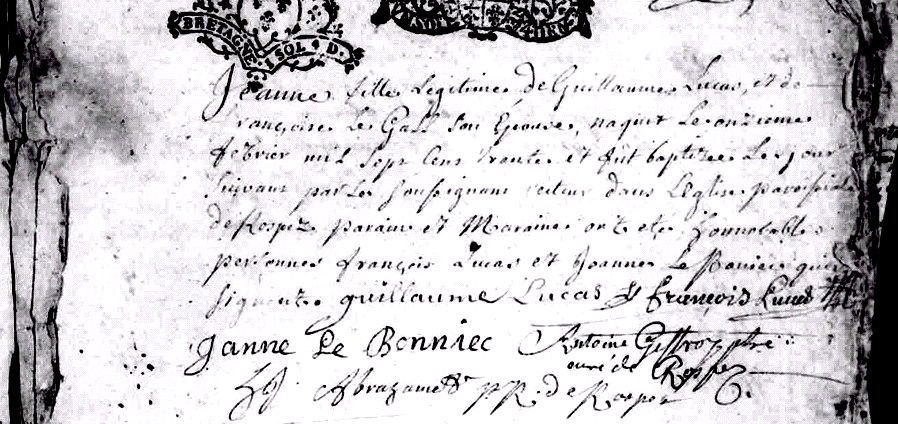 BRETAGNE
1 SOL 4 D.
Jeanne fille Legitime de Guillaume Lucas, et de
françoise Le Gall son Epouse, naquit Le onzieme
febvrier mil sept cens trente et fut baptizee Le jour
suivant par Le soussignant dans L'Eglise paroissiale
de Rospez, parain et Maraine ont ete honnorables
personnes françois Lucas et Jeanne Le Boniec qui
signent guillaume Lucas françois Lucas
Janne Le Bonniec Antoine ptre
curé de Rospez
de Rospez